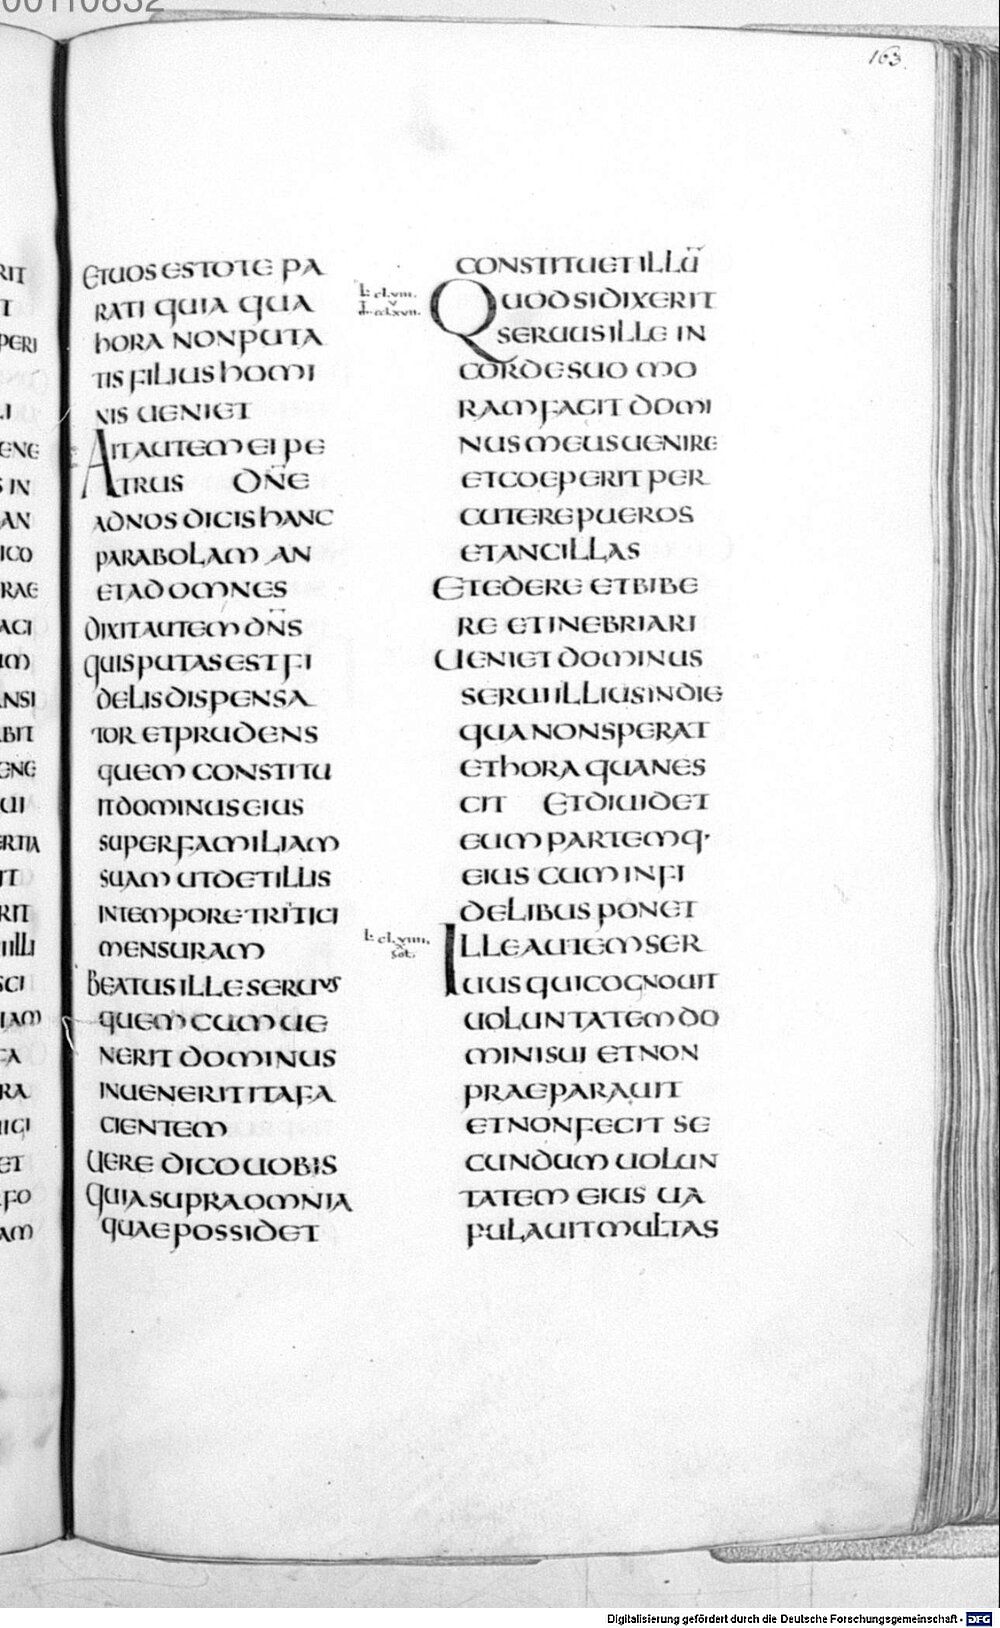 163
ETUOS ESTOTE PA
RATI QUIA QUA
HORA NON PUTA
TIS FILIUS HOMI
NIS UENIET
AIT AUTEM EI PE
TRUS DN̄E
AD NOS DICIS HANC
PARABOLAM AN
ET AD OMNES
DIXIT AUTEM DN̄S
QUIS PUTAS EST FI
DELIS DISPENSA
TOR ET PRUDENS
QUEM CONSTITU
IT DOMINUS EIUS
SUPER FAMILIAM
SUAM UT DET ILLIS
IN TEMPORE TRITICI
MENSURAM
BEATUS ILLE SERUUS
QUEM CUM UE
NERIT DOMINUS
INUENERIT ITA FA
CIENTEM
UERE DICO UOBIS
QUIA SUPRA OMNIA
QUAE POSSIDET
CONSTITUET ILLŪ
QUOD SI DIXERIT
SERUUS ILLE IN
CORDE SUO MO
RAM FACIT DOMI
NUS MEUS UENIRE
ET COEPERIT PER
CUTERE PUEROS
ET ANCILLAS
ET EDERE ET BIBE
RE ET INEBRIARI
UENIET DOMINUS
SERUI ILLIUS IN DIE
QUA NON SPERAT
ET HORA QUA NES
CIT ET DIUIDET
EUM PARTEMQ·
EIUS CUM INFI
DELIBUS PONET
ILLE AUTEM SER
UUS QUI COGNOUIT
UOLUNTATEM DO
MINI SUI ET NON
PRAEPARAUIT
ET NON FECIT SE
CUNDUM UOLUN
TATEM EIUS UA
PULAUIT MULTAS
L· cl.viii.
v
M· cclxvii.
L· cl.viiii.
x
Sol.
Digitalisierung gefördert durch die Deutsche Forschungsgemeinschaft - DFG